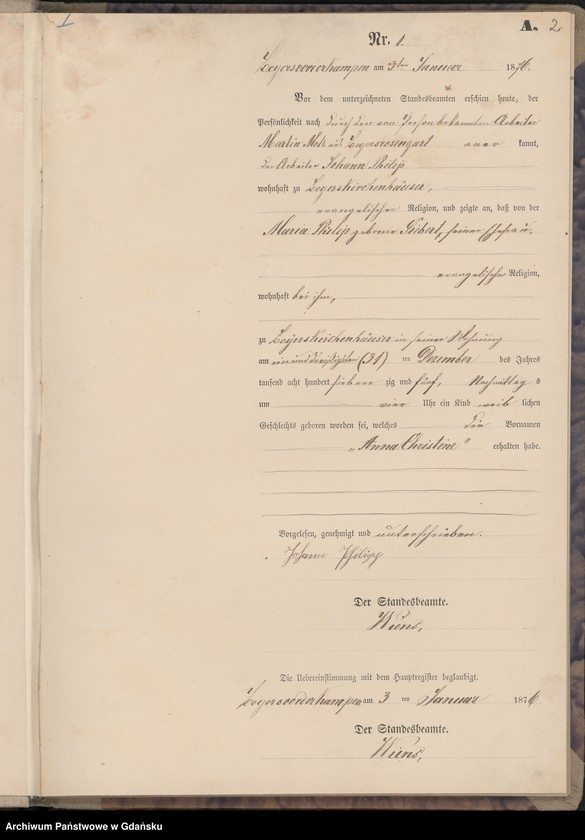 1
A. 2
Nr. 1.
Zeyersvorderkampen am 3ten Januar 1876.
Vor dem unterzeichneten Standesbeamten erschien heute, der
Persönlichkeit nach durch den von Person bekannten Arbeiter
Martin aus Zeyersrosengart kannt,
der Arbeiter Johann Philip
wohnhaft zu Zeyerskirchenhäuser,
evangelischer Religion, und zeigte an, daß von der
Maria Philip geborne seiner Ehefrau,
evangelischer Religion,
wohnhaft bei ihm,
zu Zeyerskirchenhäuser in seiner Wohnung
am einunddreißigsten (31) ten Dezember des Jahres
tausend acht hundert sieben zig und fünf, Nachmittag s
um vier Uhr ein Kind weib lichen
Geschlechts geboren worden sei, welches die Vornamen
„Anna Christine" erhalten habe.
Vorgelesen, genehmigt und unterschrieben.
Johann Philipp
Der Standesbeamte.
Wiens,
Die Uebereinstimmung mit dem Hauptregister beglaubigt.
Zeyersvorderkampen am 3 ten Januar 1876
Der Standesbeamte.
Wiens,
Archiwum Państwowe w Gdańsku